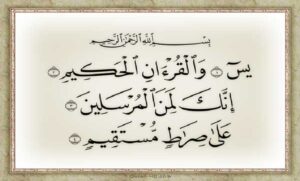 بِسْمِ اللَّهِ الرَّحْمَٰنِ الرَّحِيمِ
يسٓ ۝١ وَالْقُرْءَانِ الْحَكِيمِ ۝٢
إِنَّكَ لَمِنَ الْمُرْسَلِينَ ۝٣
عَلَىٰ صِرَاطٍ مُّسْتَقِيمٍ ۝٤